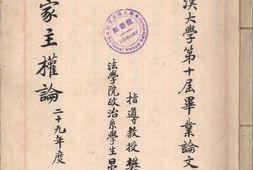 漢大學第十屆畢業論文
指導教授樊
法學院政治系學生
家主權論
二十九年度